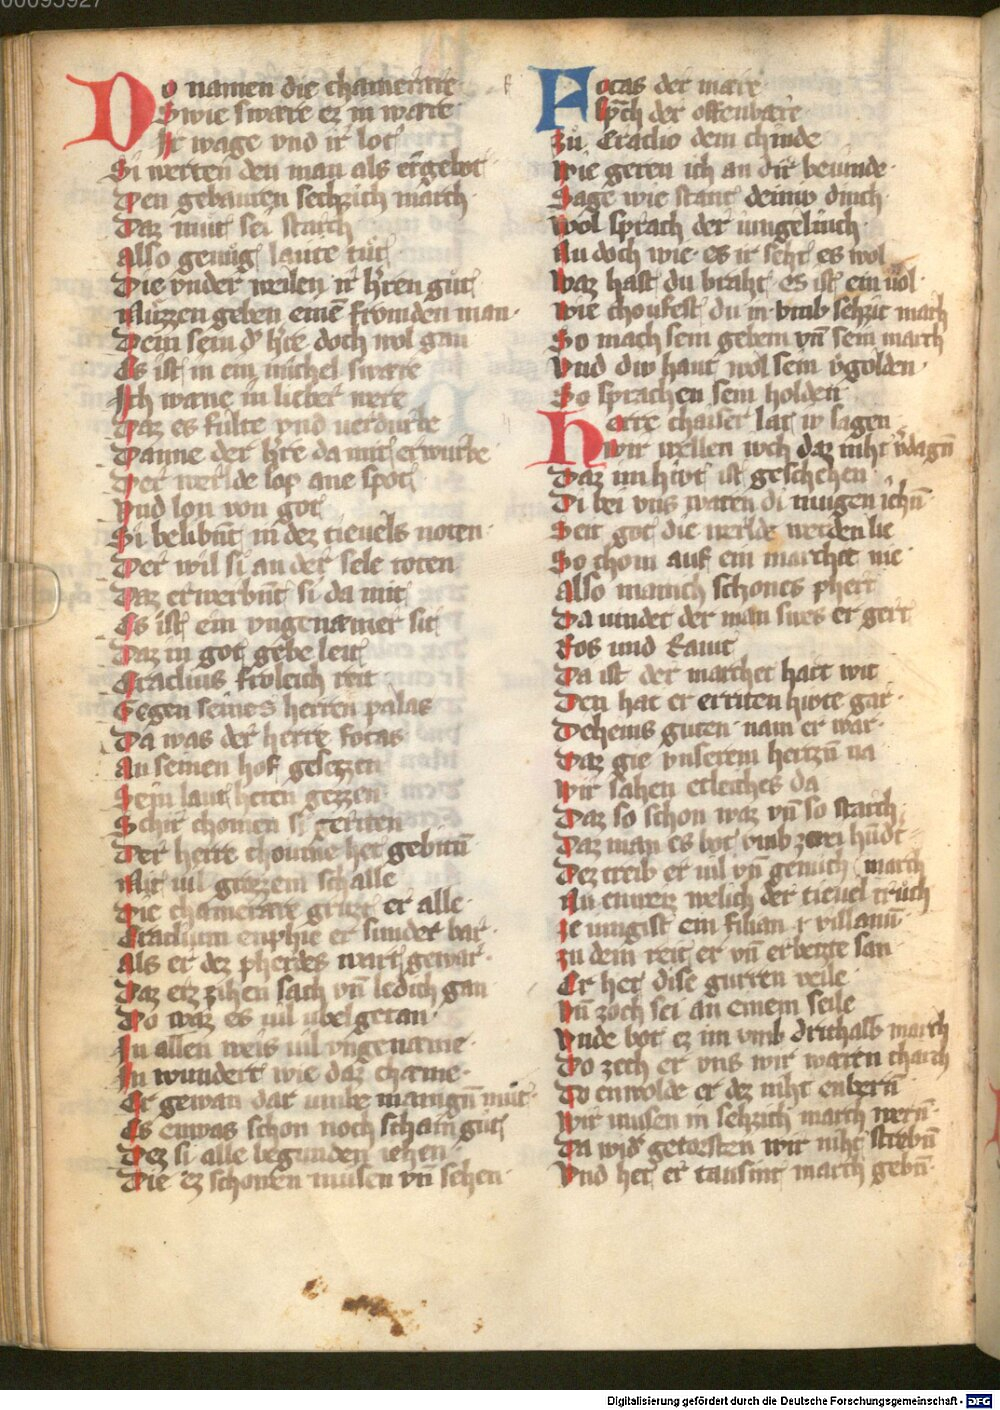 00095927
Do namen die chamerære
Swie swære ez in wære
Ir wage vnd ir lot
Si werten den man als er gebot
Den gebauten sechzich march
Daz mut sei starch
Also genuͦg laute tuͤt
Die vnder weilen ir hr̄en guͤt
Muͤzzen geben einē froͤmden man
Dem sein dˢ hr̄re doch wol gan
Es ist in ein michel swære
Ich wæne in lieber were
Daz es fulte vnd verdurbe
Danne der hr̄re da mit erwurbe
Der werlde lop ane spot
Vnd lon von got
Si belibnt in dez tievels noten
Der wil si an der sele toten
Daz erwerbnt si da mit
Es ist ein vngenæmer sit
Daz in got gebe leit
Eraclius froleich reit
Gegen seines herren palas
Da was der herre focas
An seinen hof gesezzen
Sein laut heten gezzen
Schir chomen si geriten
Der herre choume het gebitn̄
Mit vil grozzem schalle
Die chamerære gruzt er alle
Eraclium enphie er sunder bar
Als er dez pherdes wart gewar
Daz erz zihen sach vn̄ ledich gan
Do waz es vil vbel getan
In allen weis vil vngenæme
In wundert wie daz chæme
Er gewan dar vmbe manign̄ muͦt
Es enwas schon noch schain guͦt
Dez si alle begunden iehen
Die ez schonen musen vn̄ sehen
Focas der mære
Sp͛ch der offenbære
Zu Eraclio dem chinde
Wie geren ich an dir bevinde
Sage wie stant deiniv dinch
Wol sprach der iungelinch
Nu doch wie es ir seht es wol
Waz hast du braht es ist ein vol
Wie choufest du in vmb sehzic march
So mach sein gebein vn̄ sein march
Vnd div haut wol sein vͤgolden
So sprachen sein holden
Herre chaiser lat iv sagen
Wir wellen ivch daz niht vˢdagn̄
Daz im hivt ist geschehen
Di bei vns waren di mugen iehn̄
Seit got die werlde werden lie
So chom auf ein marchet nie
Also manich schones phert
Da vindet der man swes er gert
Ros vnd Ravit
Da ist der marchet hart wit
Den hat er erriten hivte gar
Deheins guten nam er war
Daz gie vnserem hertzn̄ na
Wir sahen etleiches da
Daz so schon waz vn̄ so starch
Daz man es bot vmb zwei hūdt
Dez treib er vil vn̄ genuch march
Nu enweiz welich der tievel truͦch
Ze iungist ein filian r villanū
Zu dem reit er vn̄ erbeizte san
Er het dise gurren veile
Vn̄ zoch sei an einem seile
Vnde bot ez im vmb drithalb march
Do zech er vns wir waren charch
Do enwolde er dez niht enbern̄
Wir musen in sehzich march wern̄
Da widˢ getorsten wir niht strebn̄
Vnd het er tausint march gebn̄
Digitalisierung gefördert durch die Deutsche Forschungsgemeinschaft - DFG